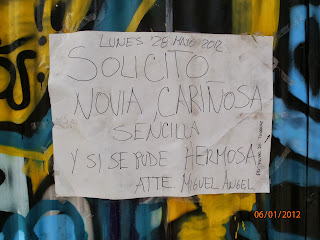 LUNES 28 MAYO 2012
SOLICITO
NOVIA, CARIÑOSA
SENCILLA
Y SI SE PUDE HERMOSA
ATTE. MIGUEL ANGEL
06/01/2012